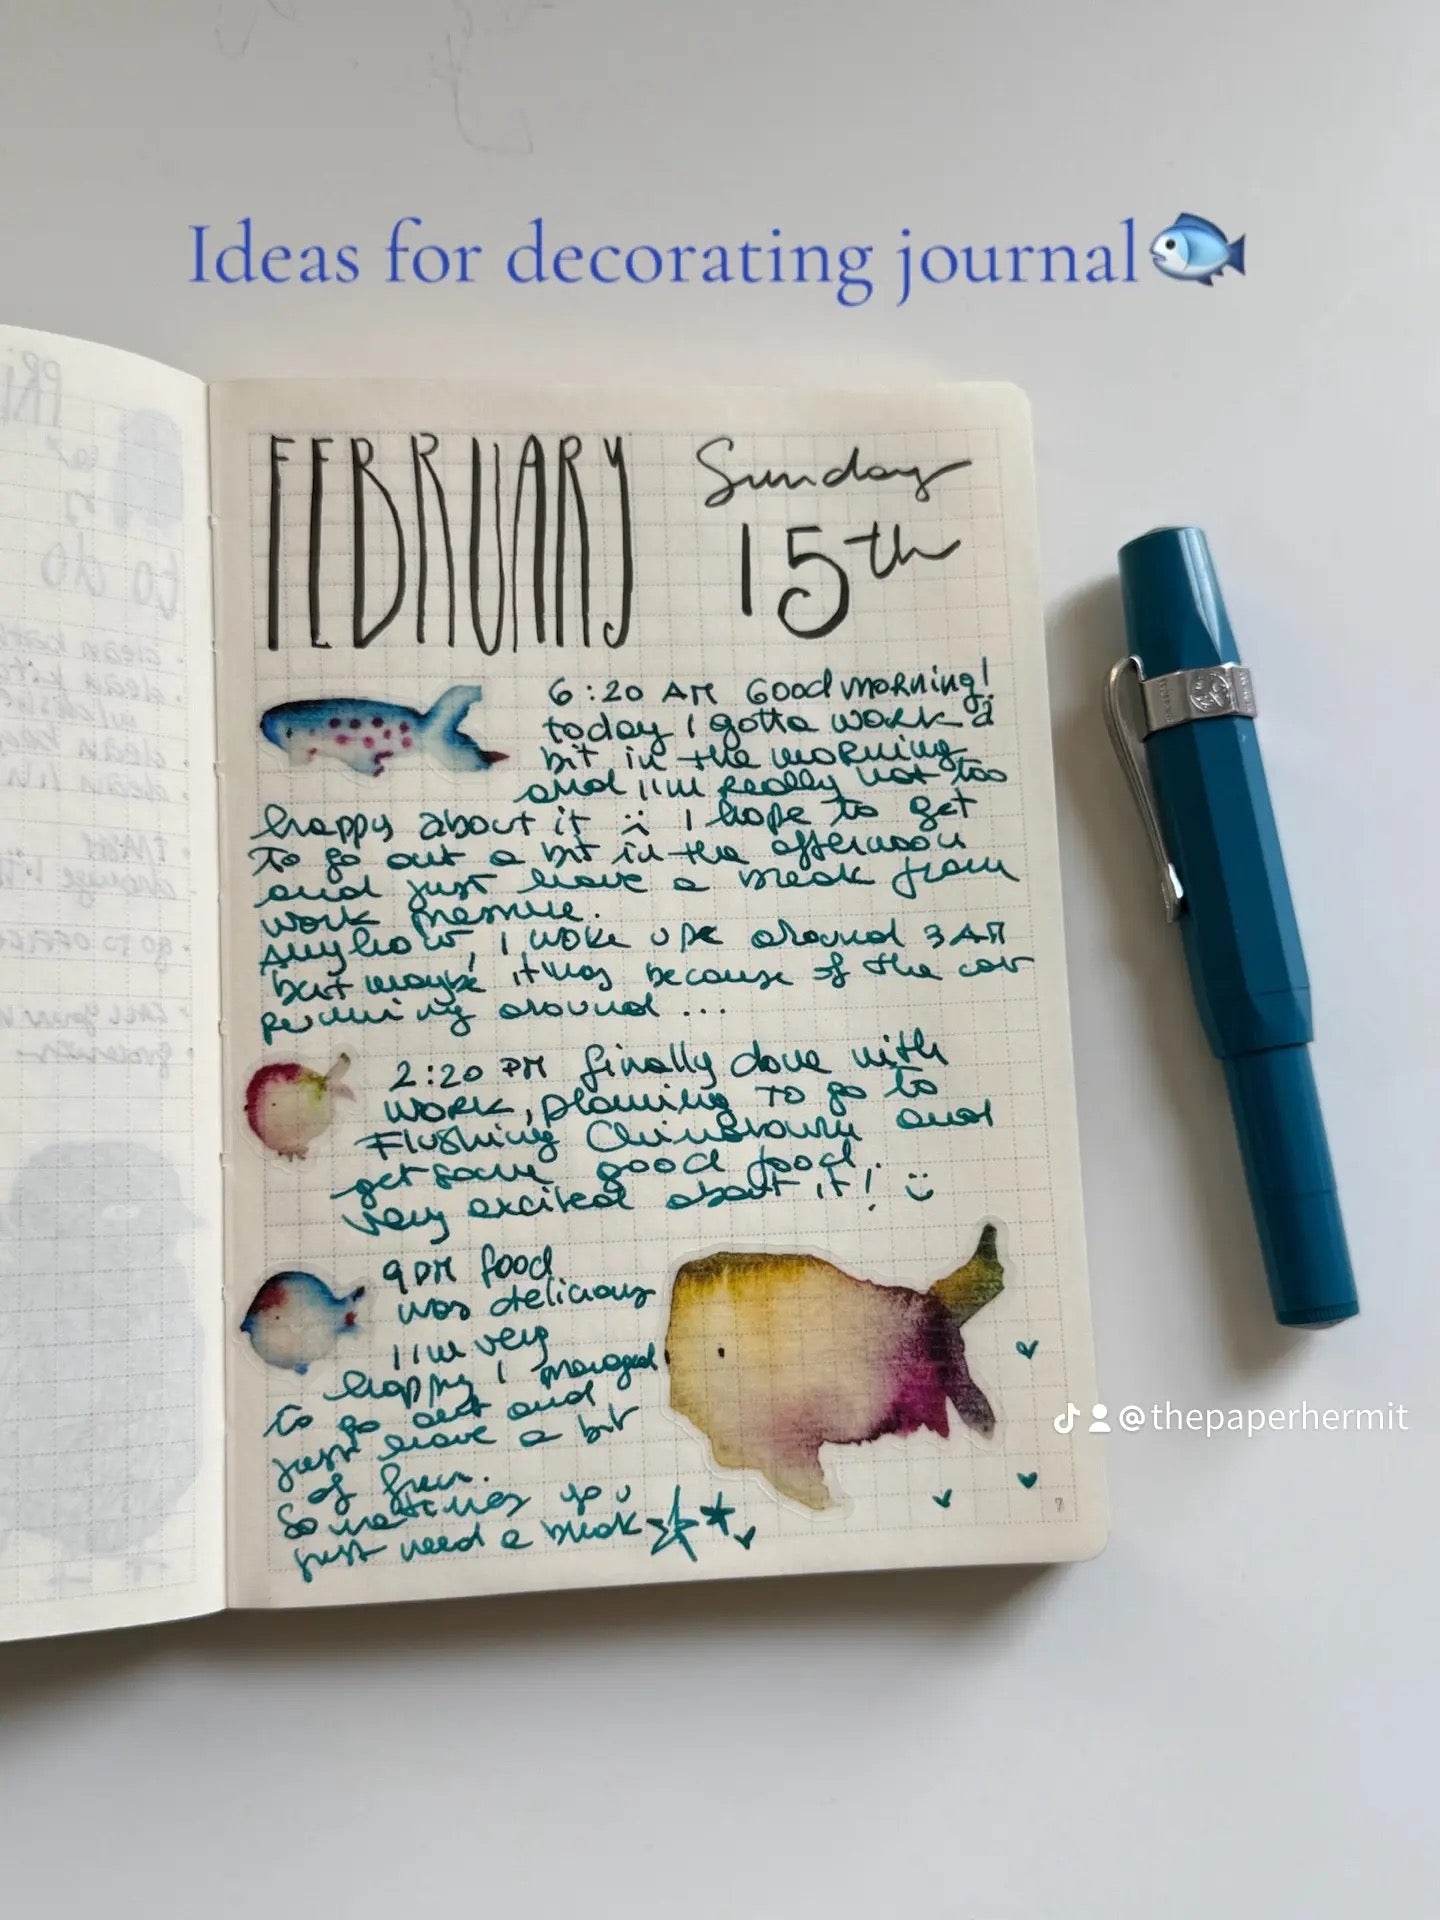 Ideas for decorating journal🐟
FEBRUARY
Sunday
15th
6:20 AM Good morning!
today I gotta work a
bit in the morning
and I'm really not too
happy about it :( I hope to get
to go out a bit in the afternoon
and just have a break from
work pressure.
Anyhow, I woke up around 3 AM
but maybe it was because of the car
running around...
2:20 PM finally done with
work, planning to go to
Flushing Chinatown and
get some good food.
very excited about it! :)
9 PM food
was delicious
I'm very
happy I managed
to go out and
just have a bit
of fun.
Sometimes you
just need a break
7
@thepaperhermit
to do